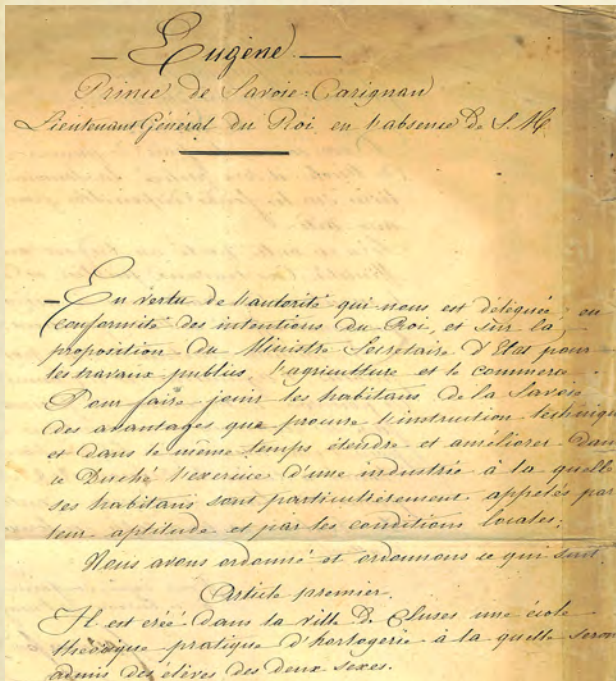 — Eugène —
Prince de Savoie-Carignan
Lieutenant Général du Roi en l'absence de S. M.
En vertu de l'autorité qui nous est déléguée; en
conformité des intentions du Roi, et sur la
proposition du Ministre Secrétaire d'Etat pour
les travaux publics, l'agriculture et le commerce
Pour faire jouir les habitans de la Savoie
des avantages que procure l'instruction technique
et dans le même temps étendre et améliorer dans
ce Duché l'exercice d'une industrie à la quelle
ses habitans sont particulièrement appelés par
leur aptitude et par les conditions locales;
Nous avons ordonné et ordonnons ce qui suit.
Article premier.
Il est créé dans la ville de Cluses une école
théorique pratique d'horlogerie à la quelle seront
admis des élèves des deux sexes.